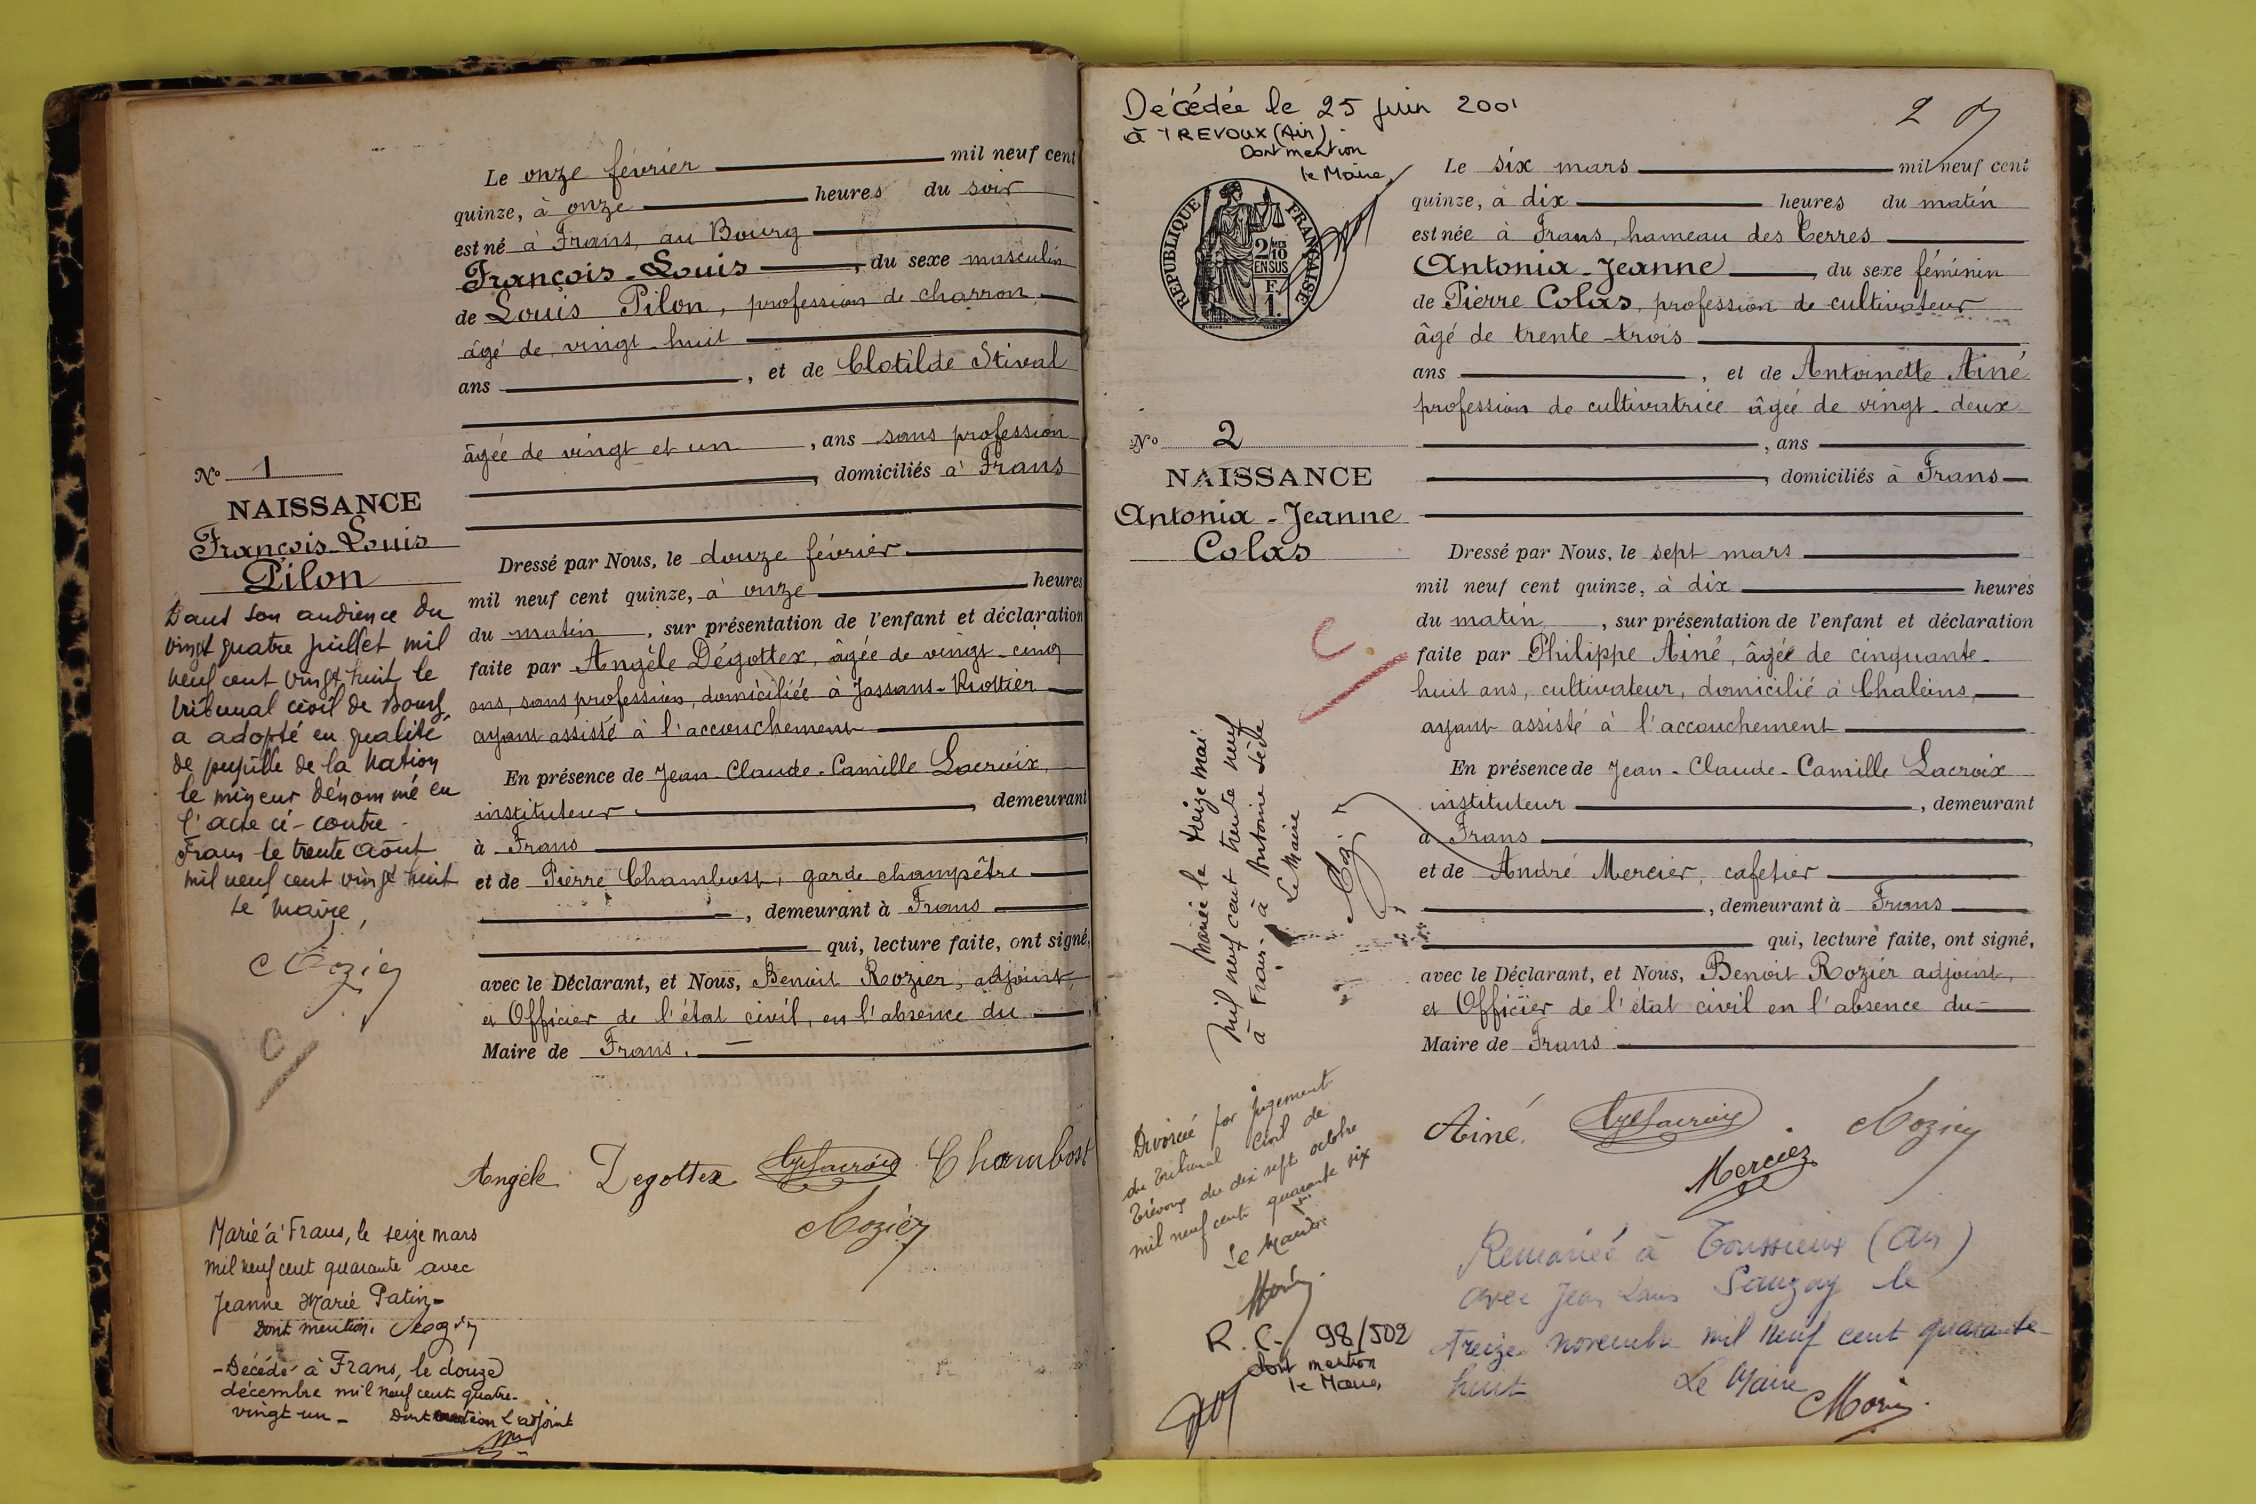 Le onze février mil neuf cent
quinze, à onze heures du soir
est né à Frans, au Bourg
François-Louis, du sexe masculin
de Louis Pilon, profession de charron
âgé de vingt-huit
ans, et de Clotilde Stival
âgée de vingt et un, ans sans profession
, domiciliés à Frans
No 1
NAISSANCE
François-Louis
Pilon
Dans son audience du
vingt quatre juillet mil
neuf cent vingt huit le
tribunal civil de Bourg
a adopté en qualité
de pupille de la Nation
le mineur dénommé en
l'acte ci-contre.
Frans le trente août
mil neuf cent vingt huit
Le Maire,
Rozier
C
Dressé par Nous, le douze février
mil neuf cent quinze, à onze heures
du matin, sur présentation de l'enfant et déclaration
faite par Angèle Dégottex, âgée de vingt-cinq
ans, sans profession, domiciliée à Jassans-Riottier
ayant assisté à l'accouchement
En présence de Jean-Claude-Camille Lacroix,
instituteur, demeurant
à Frans
et de Pierre Chambost, garde champêtre
, demeurant à Frans
qui, lecture faite, ont signé,
avec le Déclarant, et Nous, Benoit Rozier, adjoint,
et Officier de l'état civil, en l'absence du
Maire de Frans.
Angèle Degottex Lacroix Chambost
Rozier
Marié à Frans, le seize mars
mil neuf cent quarante avec
Jeanne Marie Patin-
Dont mention.
-Décédé à Frans, le douze
décembre mil neuf cent quatre-
vingt un- Dont mention L'adjoint
Décédée le 25 juin 2001
à TREVOUX (Ain).
Dont mention
le Maire,
2
RÉPUBLIQUE FRANÇAISE
2/10
EN SUS
F.
1.
Le six mars mil neuf cent
quinze, à dix heures du matin
est née à Frans, hameau des Terres
Antonia-Jeanne, du sexe féminin
de Pierre Colas, profession de cultivateur
âgé de trente-trois
ans, et de Antoinette Ainé
profession de cultivatrice âgée de vingt-deux
, ans
, domiciliés à Frans
No 2
NAISSANCE
Antonia-Jeanne
Colas
Dressé par Nous, le sept mars
mil neuf cent quinze, à dix heures
du matin, sur présentation de l'enfant et déclaration
faite par Philippe Ainé, âgée de cinquante-
huit ans, cultivateur, domicilié à Chaleins,
ayant assisté à l'accouchement
En présence de Jean-Claude-Camille Lacroix
instituteur, demeurant
à Frans
et de André Mercier, cafetier
, demeurant à Frans
qui, lecture faite, ont signé,
avec le Déclarant, et Nous, Benoit Rozier adjoint,
et Officier de l'état civil en l'absence du
Maire de Frans
C
Mariée le treize mai
mil neuf cent trente neuf
à Frans à Antoine
Le Maire
Ainé. Lacroix Rozier
Mercier
Divorcée par jugement
du tribunal civil de
Trévoux du dix sept octobre
mil neuf cent quarante six
Le Maire
Morin
R.C. 98/502
dont mention
le Maire,
Remariée à Toussieux (Ain)
avec Jean Louis Sauzay le
treize novembre mil neuf cent quarante
huit Le Maire
Morin